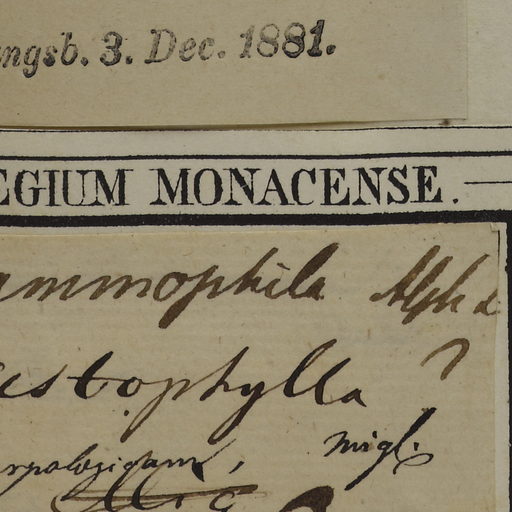 ngsb. 3. Dec. 1881.
EGIUM MONACENSE.
ammophila Alph d
istophylla ?
migl.